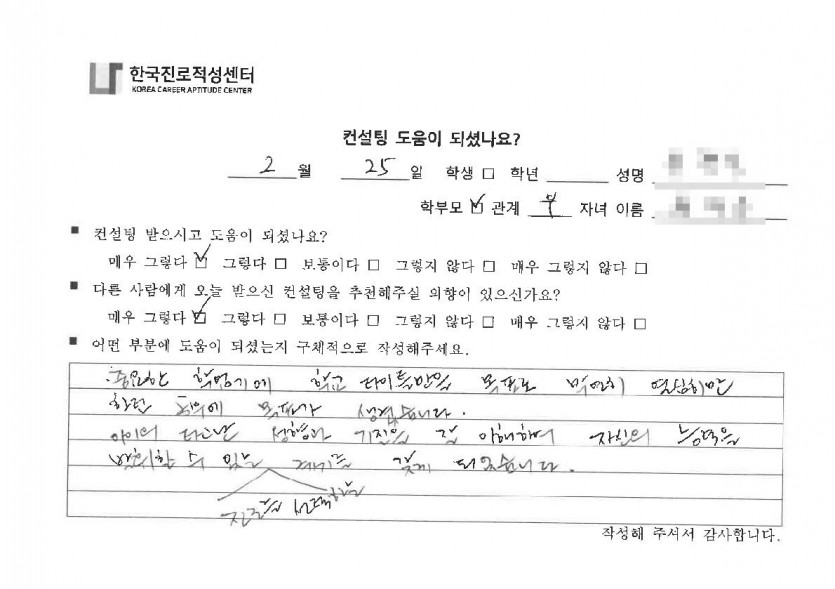 한국진로적성센터
KOREA CAREER APTITUDE CENTER
컨설팅 도움이 되셨나요?
2 월 25 일 학생 □ 학년 성명
학부모 ☑ 관계 부 자녀 이름
■ 컨설팅 받으시고 도움이 되셨나요?
매우 그렇다 ☑ 그렇다 □ 보통이다 □ 그렇지 않다 □ 매우 그렇지 않다 □
■ 다른 사람에게 오늘 받으신 컨설팅을 추천해주실 의향이 있으신가요?
매우 그렇다 ☑ 그렇다 □ 보통이다 □ 그렇지 않다 □ 매우 그렇지 않다 □
■ 어떤 부분에 도움이 되셨는지 구체적으로 작성해주세요.
중요한 학업기에 학교 타이틀만을 목표로 막연히 열심히만
하던 차에 목표가 생겼습니다.
아이의 타고난 성향과 기질을 잘 이해하며 자신의 능력을
발휘할 수 있는 계기를 갖게 되었습니다.
진로를 선택하는
작성해 주셔서 감사합니다.